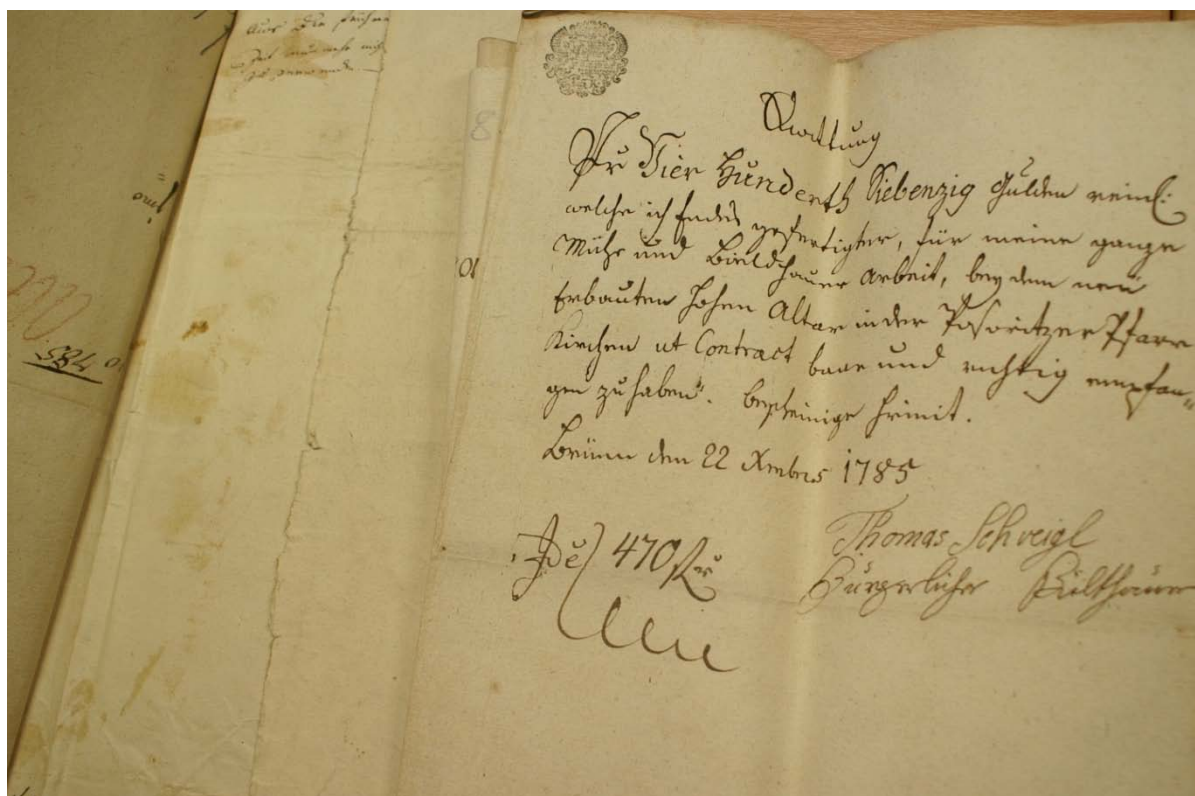 Aus der frühern
Zeit
8
584
Quittung
Pr Vier Hunderth Siebenzig Gulden reinl:
welche ich Endes gefertigter, für meine gantze
Mühe und Bieldhauer Arbeit, bey dem neu
Erbauten Hohen Altar in der Posoritzer Pfarr
Kirchen ut Contract baar und richtig empfan„
gen zu haben“. bescheinige hiemit.
Brünn den 22 Xmbris 1785
470
Thomas Schweigl
Bürgerlicher Bülthauer